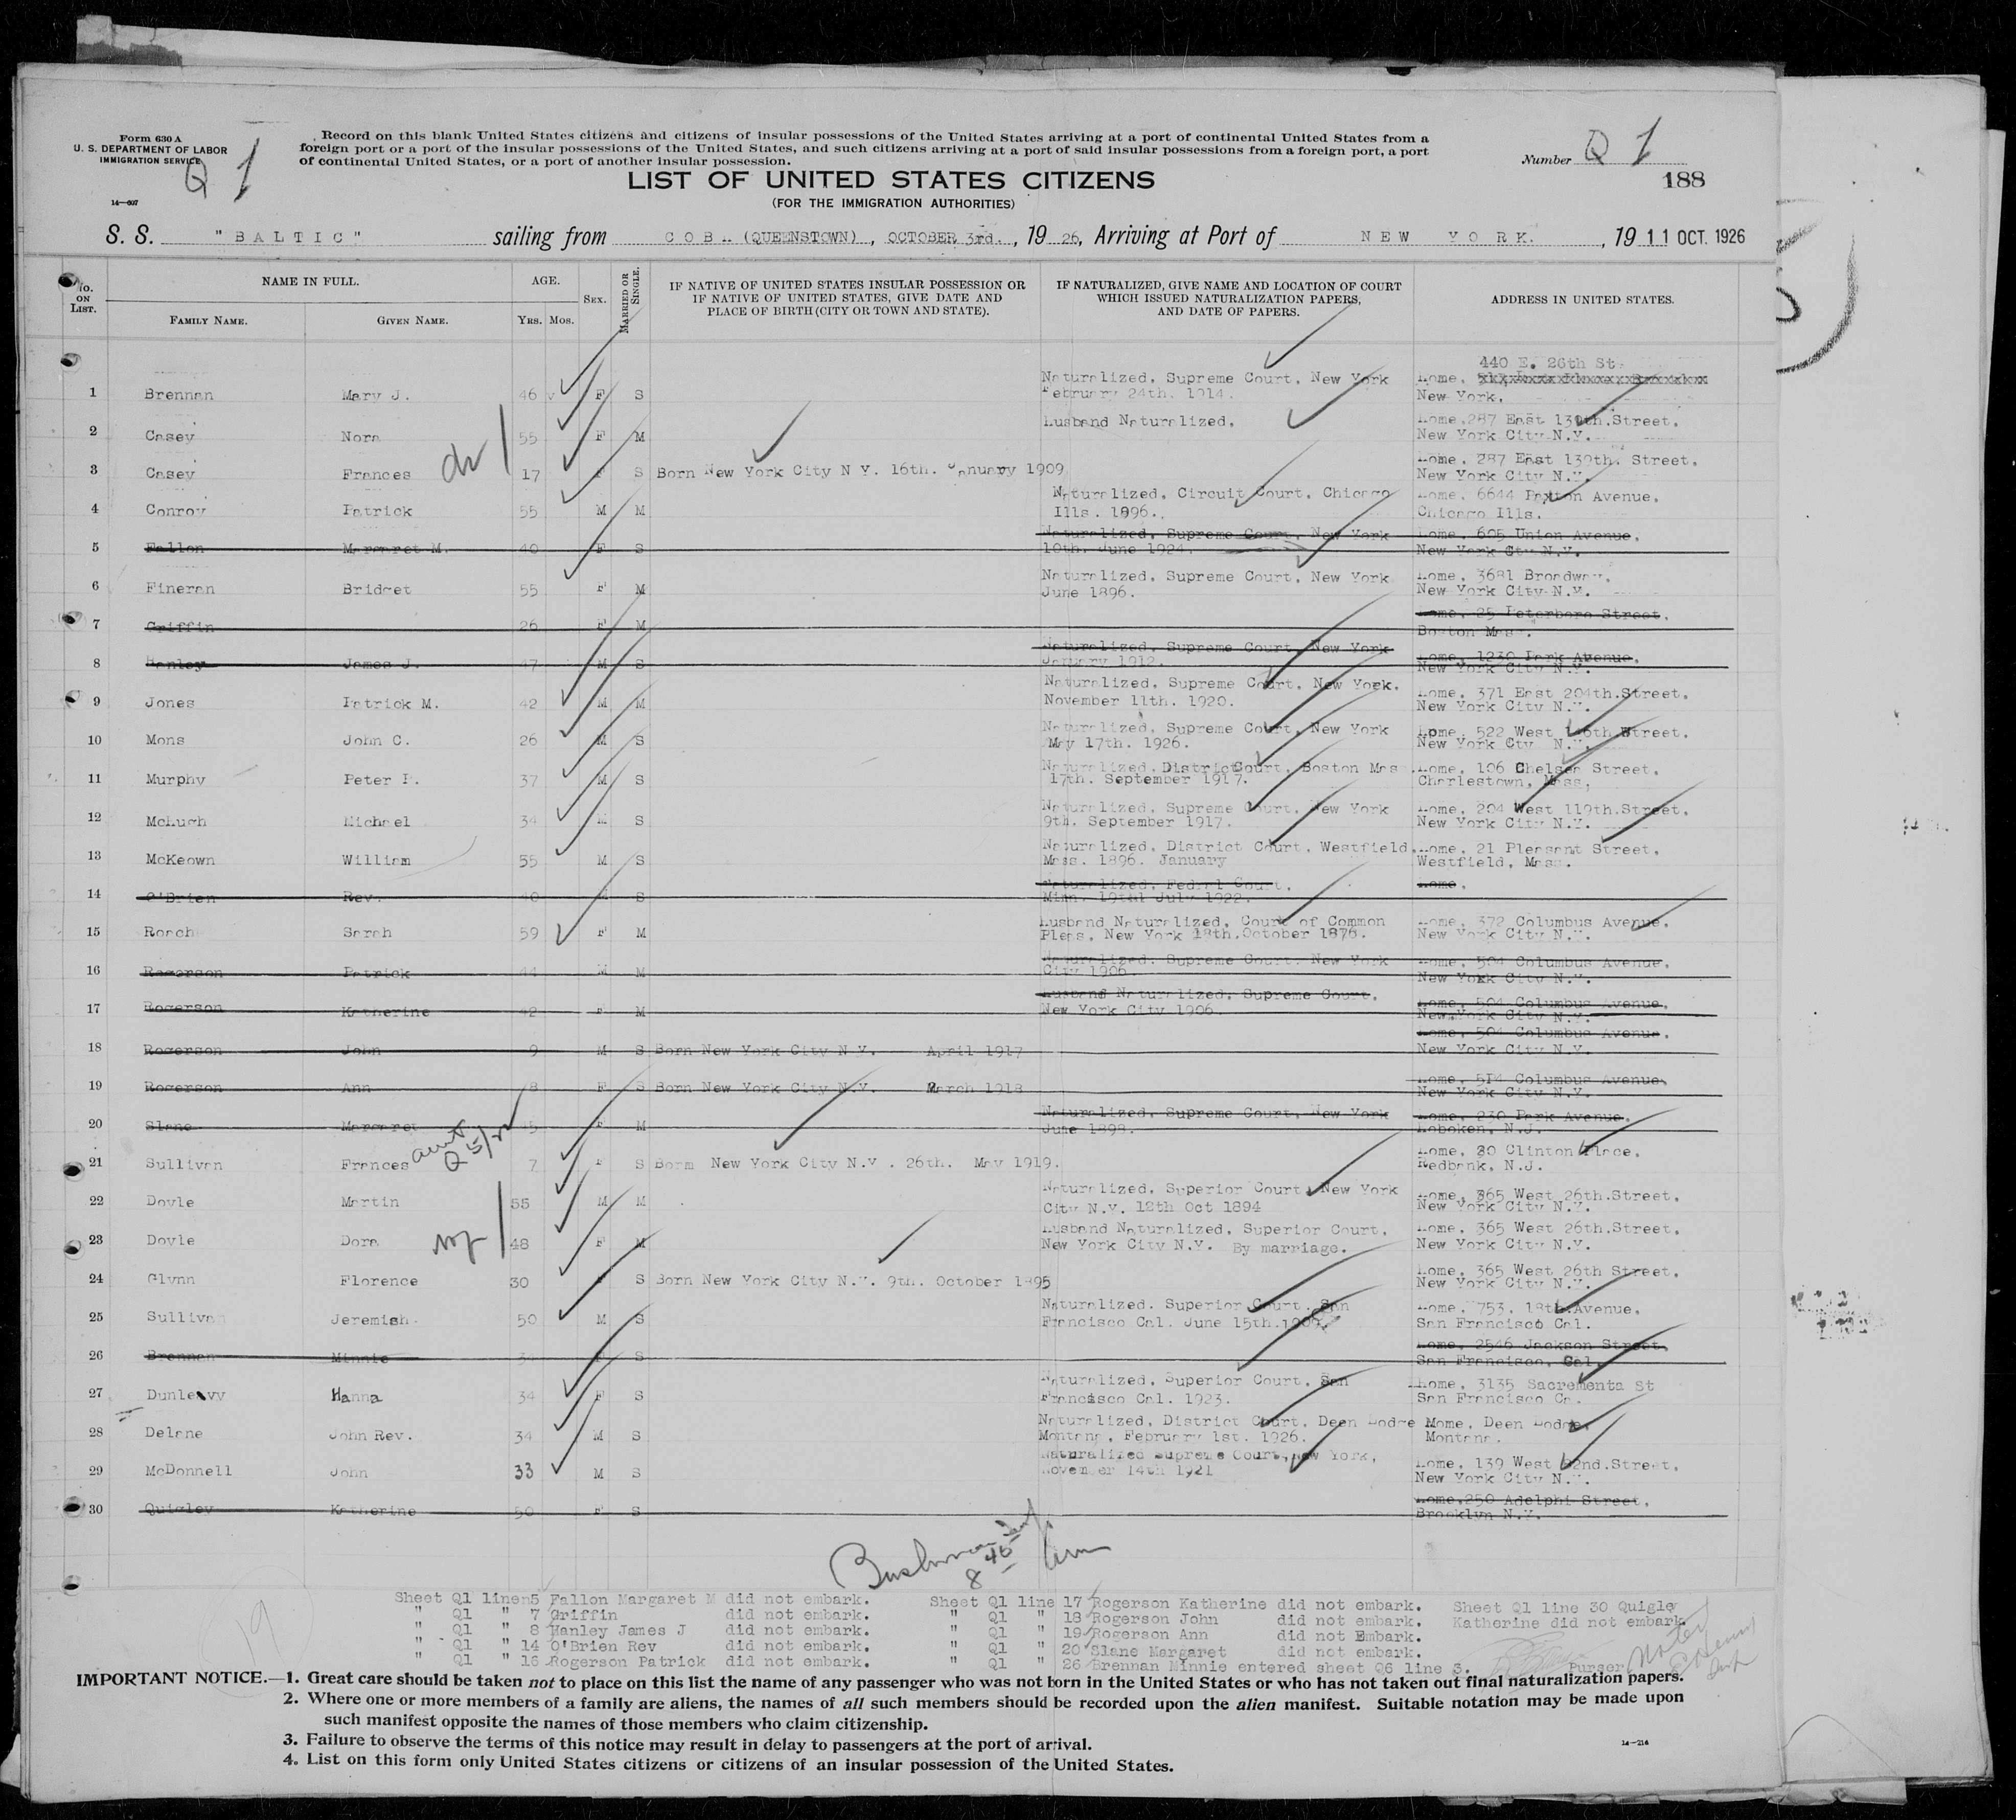 Form 630 A
U. S. DEPARTMENT OF LABOR
IMMIGRATION SERVICE
Q 1
14—607
Record on this blank United States citizens and citizens of insular possessions of the United States arriving at a port of continental United States from a
foreign port or a port of the insular possessions of the United States, and such citizens arriving at a port of said insular possessions from a foreign port, a port
of continental United States, or a port of another insular possession.
Number Q 1
188
LIST OF UNITED STATES CITIZENS
(FOR THE IMMIGRATION AUTHORITIES)
S. S. "BALTIC" sailing from COBH (QUEENSTOWN), OCTOBER 3rd., 1926, Arriving at Port of NEW YORK., 19 11 OCT. 1926
No. ON LIST. NAME IN FULL. FAMILY NAME. GIVEN NAME. AGE. YRS. MOS. SEX. MARRIED OR SINGLE. IF NATIVE OF UNITED STATES INSULAR POSSESSION OR IF NATIVE OF UNITED STATES, GIVE DATE AND PLACE OF BIRTH (CITY OR TOWN AND STATE). IF NATURALIZED, GIVE NAME AND LOCATION OF COURT WHICH ISSUED NATURALIZATION PAPERS, AND DATE OF PAPERS. ADDRESS IN UNITED STATES.
1 Brennan Mary J. 46 F S Naturalized, Supreme Court, New York February 24th. 1914. Home, 440 E. 26th St. New York.
2 Casey Nora 55 F M Husband Naturalized, Home, 287 East 139th. Street, New York City N.Y.
3 Casey Frances 17 F S Born New York City N Y. 16th. January 1909 Home, 287 East 139th. Street, New York City N.Y.
4 Conroy Patrick 55 M M Naturalized, Circuit Court, Chicago Ills. 1896. Home, 6644 Paxton Avenue, Chicago Ills.
5 Fallon Margaret M. 40 F S Naturalized, Supreme Court, New York 10th. June 1924. Home, 605 Union Avenue, New York Cty N.Y.
6 Fineran Bridget 55 F M Naturalized, Supreme Court, New York June 1896. Home, 3681 Broadway, New York City N.Y.
7 Griffin 26 F M Home, 25 Peterboro Street, Boston Mass.
8 Hanley James J. 47 M S Naturalized, Supreme Court, New York January 1912. Home, 1230 Park Avenue, New York City N.Y.
9 Jones Patrick M. 42 M M Naturalized, Supreme Court, New York. November 11th. 1920. Home, 371 East 204th. Street, New York City N.Y.
10 Mons John C. 26 M S Naturalized, Supreme Court, New York May 17th. 1926. Home, 522 West Street, New York Cty N.Y.
11 Murphy Peter P. 37 M S Naturalized, District Court, Boston Mass. 17th. September 1917. Home, 106 Chelsea Street, Charlestown, Mass,
12 McHugh Michael 34 M S Naturalized, Supreme Court, New York 9th. September 1917. Home, 204 West 119th. Street, New York City N.Y.
13 McKeown William 55 M S Naturalized, District Court, Westfield, Mass. 1896. January Home, 21 Pleasant Street, Westfield, Mass.
14 O'Brien Rev. 40 M S Naturalized, Fedral Court, Minn. 19th July 1922. Home.
15 Roach Sarah 59 F M Husband Naturalized, Court of Common Pleas, New York 18th. October 1876. Home, 372 Columbus Avenue, New York City N.Y.
16 Rogerson Patrick 44 M M Naturalized, Supreme Court, New York City 1906. Home, 504 Columbus Avenue, New York City N.Y.
17 Rogerson Katherine 42 F M Husband Naturalized, Supreme Court, New York City 1906 Home, 504 Columbus Avenue, New York City N.Y.
18 Rogerson John 9 M S Born New York City N Y. April 1917 Home, 504 Columbus Avenue, New York City N.Y.
19 Rogerson Ann 8 F S Born New York City N.Y. March 1918 Home, 514 Columbus Avenue, New York City N.Y.
20 Slane Margaret 45 F M Naturalized, Supreme Court, New York June 1898. Home, 230 Park Avenue, Hoboken, N.J.
aunt Q 5/2
21 Sullivan Frances 7 F S Born New York City N.Y. 26th. May 1919. Home, 80 Clinton Place, Redbank, N.J.
22 Doyle Martin 55 M M Naturalized, Superior Court, New York City N.Y. 18th Oct 1894 Home, 365 West 26th. Street, New York City N.Y.
23 Doyle Dora 48 F M Husband Naturalized, Superior Court, New York City N.Y. By marriage. Home, 365 West 26th. Street, New York City N.Y.
24 Glynn Florence 30 F S Born New York City N.Y. 9th. October 1895 Home, 365 West 26th Street, New York City N.Y.
25 Sullivan Jeremiah 50 M S Naturalized. Superior Court, San Francisco Cal. June 15th. Home, 753, 18th. Avenue, San Francisco Cal.
26 Brennan Minnie 34 F S Home, 2546 Jackson Street, San Francisco, Cal.
27 Dunleavy Hanna 34 F S Naturalized, Superior Court, San Francisco Cal. 1923. Home, 3135 Sacremento St San Francisco Ca.
28 Delane John Rev. 34 M S Naturalized, District Court, Deen Lodge Montana, February 1st. 1926. Home, Deen Lodge, Montana.
29 McDonnell John 33 M S Naturalized Supreme Court, New York, November 14th 1921 Home, 139 West 82nd. Street, New York City N.Y.
30 Quigley Katherine 50 F S Home, 250 Adelphi Street, Brooklyn N.Y.
Bushman 8 45
19
Sheet Q1 line 5 Fallon Margaret M did not embark.
" Q1 " 7 Griffin did not embark.
" Q1 " 8 Hanley James J did not embark.
" Q1 " 14 O'Brien Rev did not embark.
" Q1 " 16 Rogerson Patrick did not embark.
Sheet Q1 line 17 Rogerson Katherine did not embark.
" Q1 " 18 Rogerson John did not embark.
" Q1 " 19 Rogerson Ann did not Embark.
" Q1 " 20 Slane Margaret did not embark.
" Q1 " 26 Brennan Minnie entered sheet Q6 line 3.
Sheet Q1 line 30 Quigley
Katherine did not embark
Purser
IMPORTANT NOTICE.—1. Great care should be taken not to place on this list the name of any passenger who was not born in the United States or who has not taken out final naturalization papers.
2. Where one or more members of a family are aliens, the names of all such members should be recorded upon the alien manifest. Suitable notation may be made upon
such manifest opposite the names of those members who claim citizenship.
3. Failure to observe the terms of this notice may result in delay to passengers at the port of arrival.
4. List on this form only United States citizens or citizens of an insular possession of the United States.
14—214